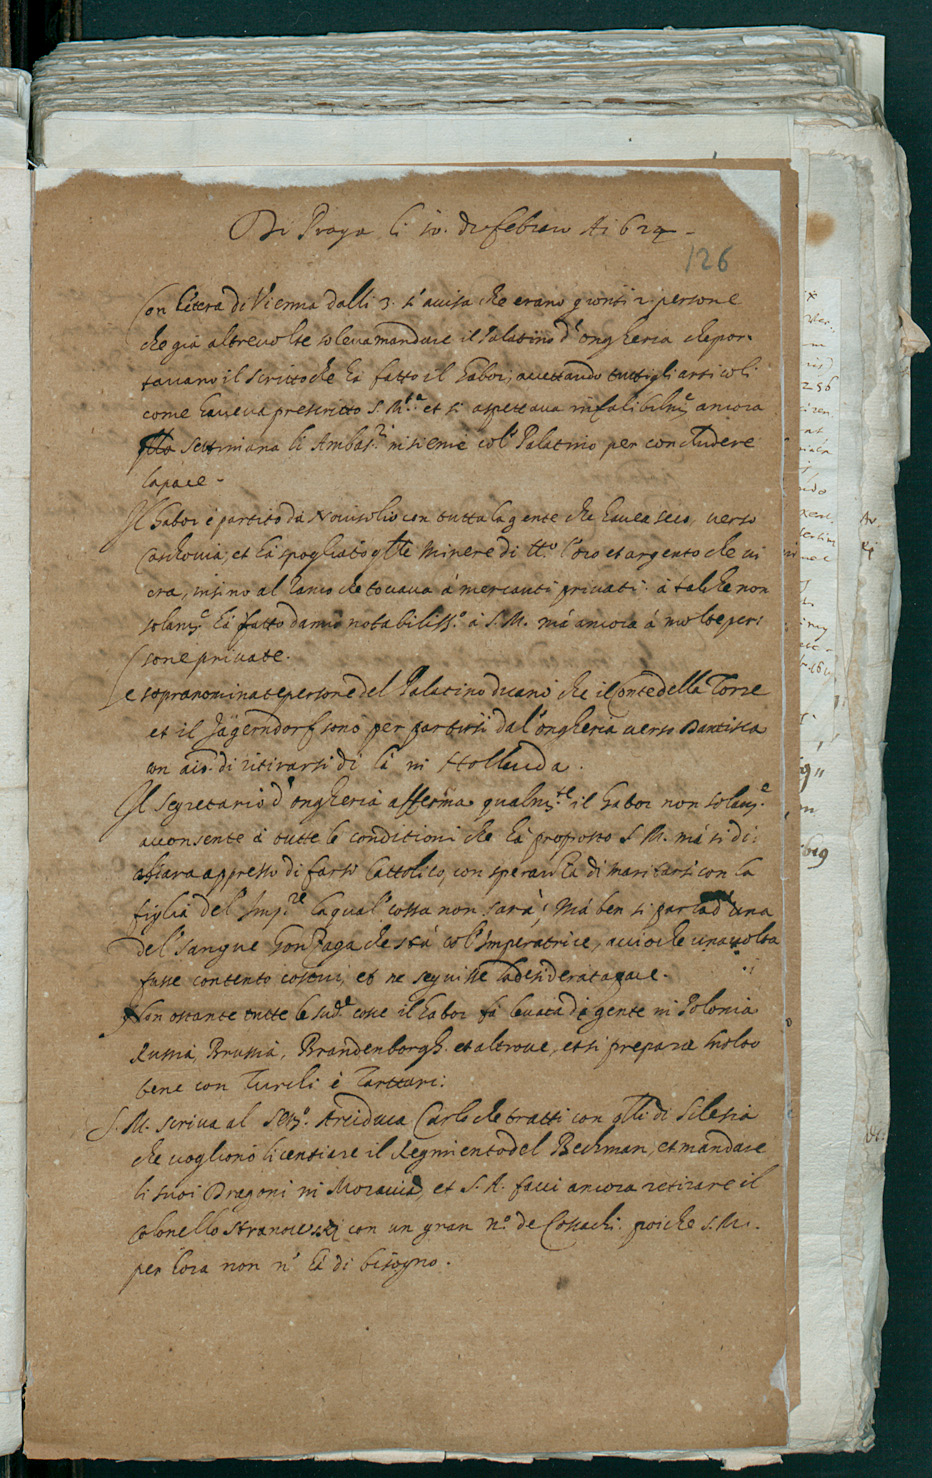 Di Praga li 10. di Febraro A. 1624.
126
Con littera di Vienna dalli 3. s'avisa che erano gionti 2. persone
che già altrevolte soleva mandare il Palatino d'Ongheria che por-
tavano il scritto che hà fatto il Gabor, accettando tutti gli articoli
come haveva prescritto S. M.tà et si aspettava infalibilm.e ancora
q.sta settimana li Ambas.ri insieme col' Palatino per concludere
la pace.
Il Gabor è partito da Novisolio con tutta la gente che havea seco, verso
Cashovia, et hà spogliato q.lle minere di tt.o l'oro et argento che vi
era, insino al ramo che tocava à mercanti privati. à tal che non
solam.e hà fatto danno notabiliss.o à S. M. mà ancora à molte per-
sone private.
Le sopranominate persone del Palatino dicano che il Conte della Torre
et il Jägerndorf sono per partirsi dal' Ongheria verso Dantisca
con aio. di ritirarsi di là in Hollanda.
Il Segretario d'Ongheria afferma qualm.te il Gabor non solam.e
acconsente à tutte le conditioni che hà proposto S. M. mà si di-
chiara appresso di farsi Cattolico, con speranza di maritarsi con la
figlia del' Imp.re la qual' cossa non sarà; Mà ben si parla d'una
del' sangue Gonzaga che stà col' Imperatrice, acciochè una volta
fusse contento costui, et ne seguisse la desiderata pace.
Non ostante tutte le sud.e cosse il Gabor fà levata di gente in Polonia
Russia, Brussia, Brandenborgh. et altrove, et si prepara molto
bene con Turchi è Tartari:
S. M. scriva al Ser.mo Arciduca Carlo che tratti con q.lli di Silesia
che vogliono licentiare il Regimiento del Bechman, et mandare
li suoi Dragoni in Moravia, et S. A. facci ancora retirare il
Colonello Stranoieski con un gran n.o de Cossachi. poiche S. M.
per hora non n' hà di bisogno.